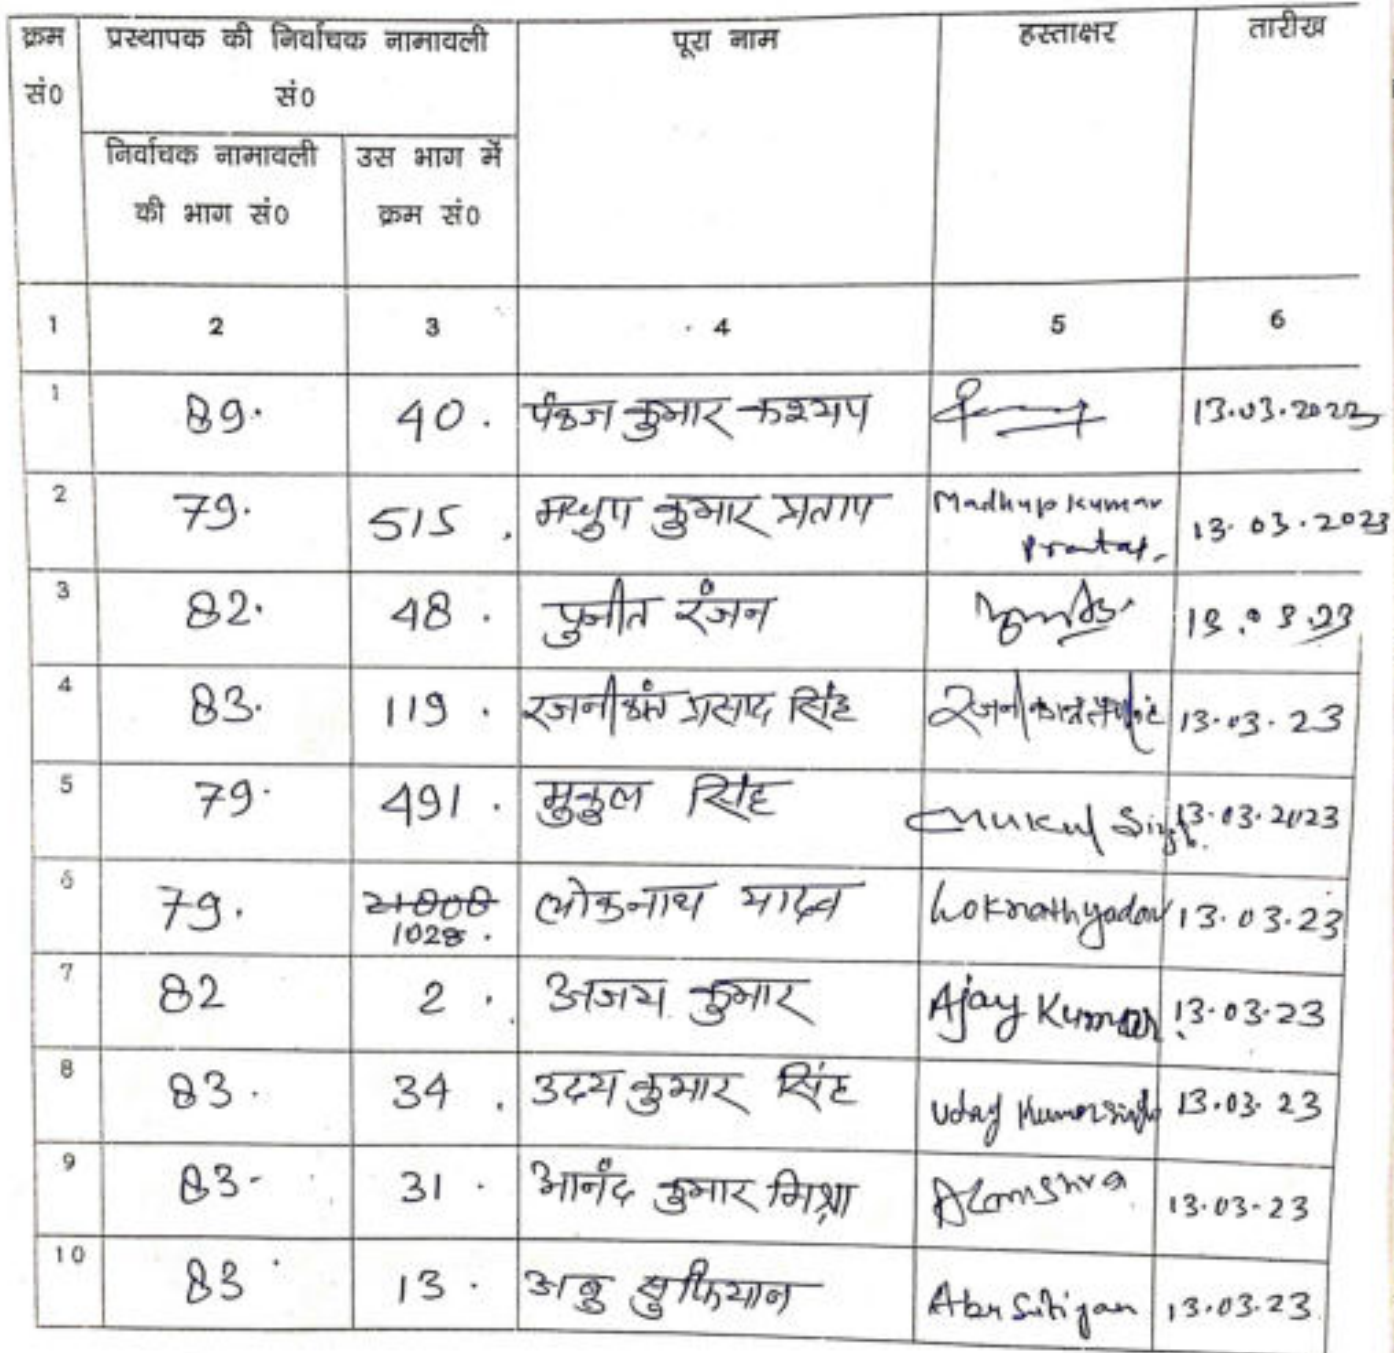 क्रम प्रस्थापक की निर्वाचक नामावली पूरा नाम हस्ताक्षर तारीख
सं0 सं0
निर्वाचक नामावली उस भाग में
की भाग सं0 क्रम सं0
1 2 3 4 5 6
1 89. 40. पंकज कुमार कश्यप 13.03.2023
2 79. 515. मधुप कुमार प्रताप Madhup Kumar 13.03.2023
Pratap
3 82. 48. पुनीत रंजन 13.03.23
4 83. 119. रजनीकांत प्रसाद सिंह 13.03.23
5 79. 491. मुकुल सिंह Mukul Singh 13.03.2023
6 79. लोकनाथ यादव Loknath yadav 13.03.23
1028.
7 82 2. अजय कुमार Ajay Kumar 13.03.23
8 83. 34. उदय कुमार सिंह Uday Kumar Singh 13.03.23
9 83- 31. आनंद कुमार मिश्रा 13.03-23
10 83 13. अबु सुफियान Abu Sufiyan 13.03.23